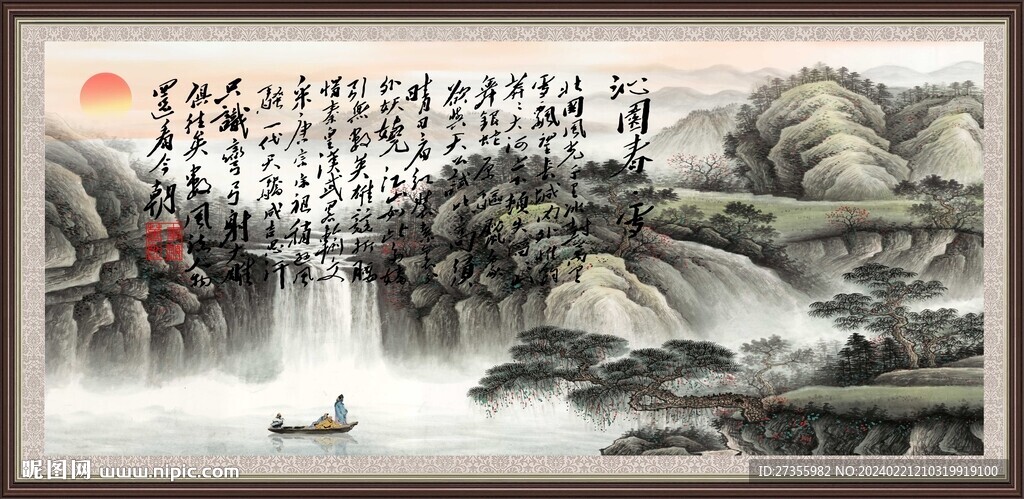 沁園春 雪
北国風光千里冰封萬里
雪飄望長城内外惟餘
莽〻大河上下頓失滔〻山
舞銀蛇原驅臘象
欲與天公試比高須
晴日看紅裝素裹分
外妖嬈江山如此多嬌
引無數英雄競折腰
惜秦皇漢武略輸文
采唐宗宋祖稍遜風
騷一代天驕成吉思汗
只識彎弓射大雕
俱往矣數風流人物
還看今朝
昵图网 www.nipic.com
ID:27355982 NO:20240221210319919100